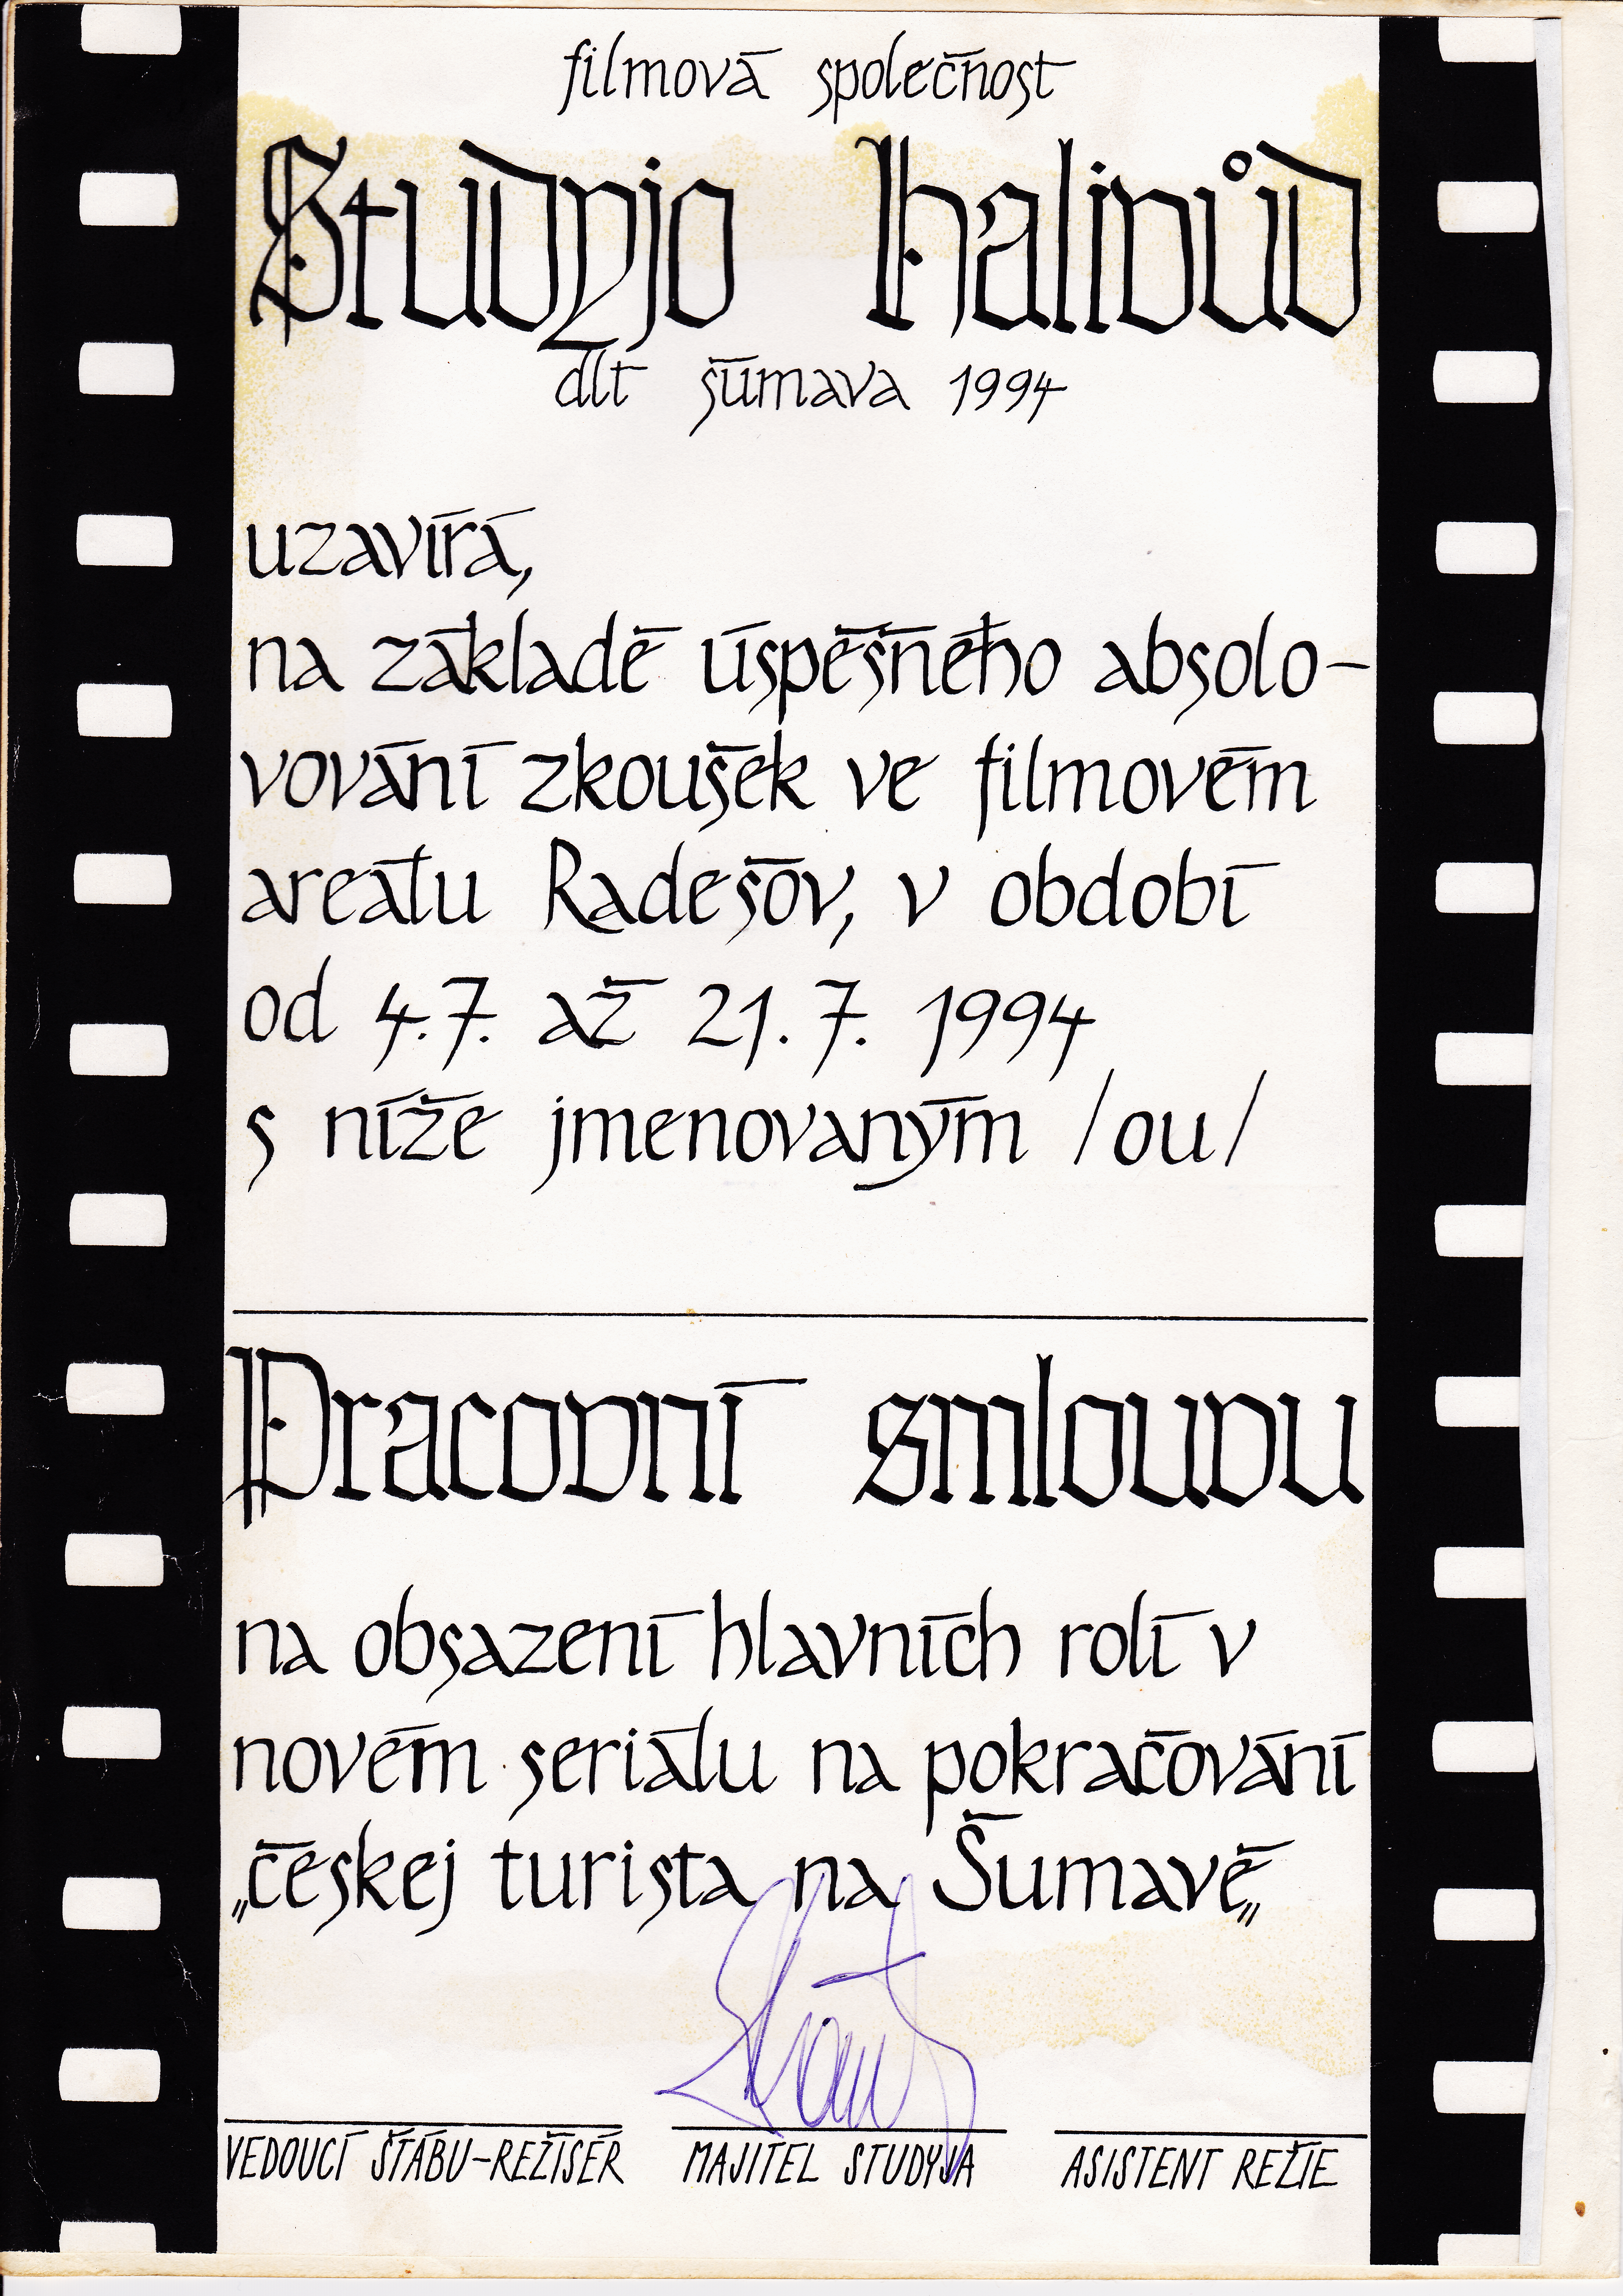 filmová společnost
Studyjo Halivůd
dlt šumava 1994
uzavírá,
na základě úspěšného absolo-
vování zkoušek ve filmovém
areálu Radešov, v období
od 4.7. až 21.7. 1994
s níže jmenovaným /ou/
Pracovní smlouvu
na obsazení hlavních rolí v
novém seriálu na pokračování
„českej turista na Šumavě„
VEDOUCÍ ŠTÁBU-REŽISÉR MAJITEL STUDYJA ASISTENT REŽIE